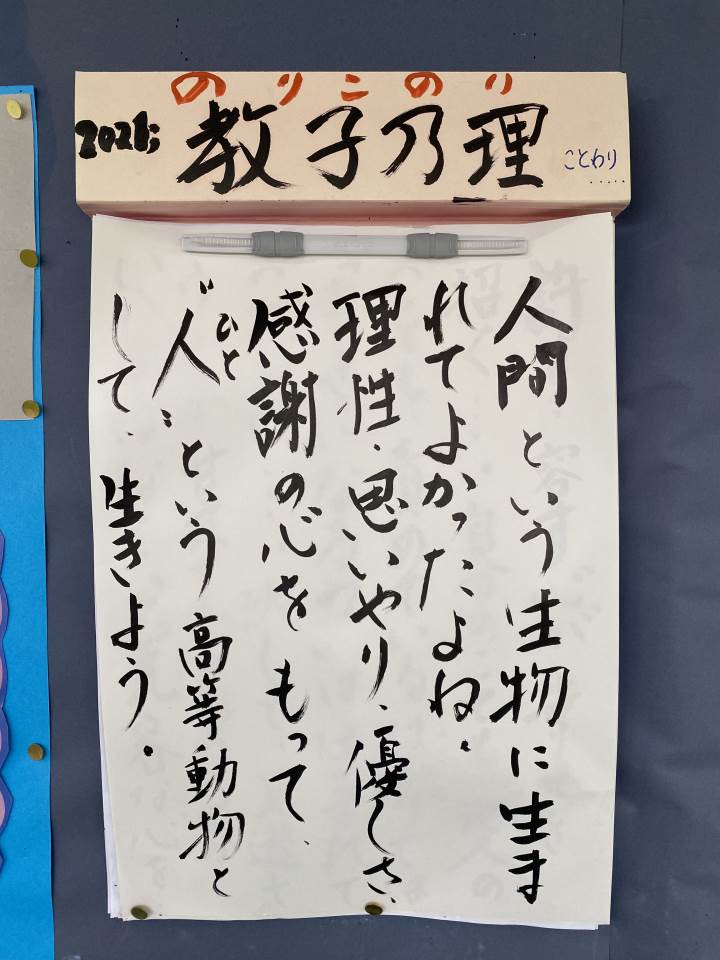 のりこのり
2026;
教子乃理
ことわり
人間という生物に生ま
れてよかったよね。
理性、思いやり、優しさ、
感謝の心をもって、
“人”という高等動物と
ひと
して、生きよう。